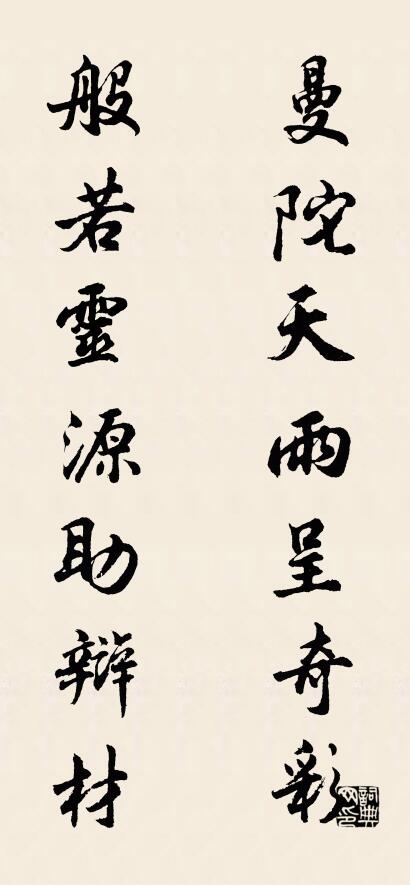 曼陀天雨呈奇彩
般若靈源助辯材